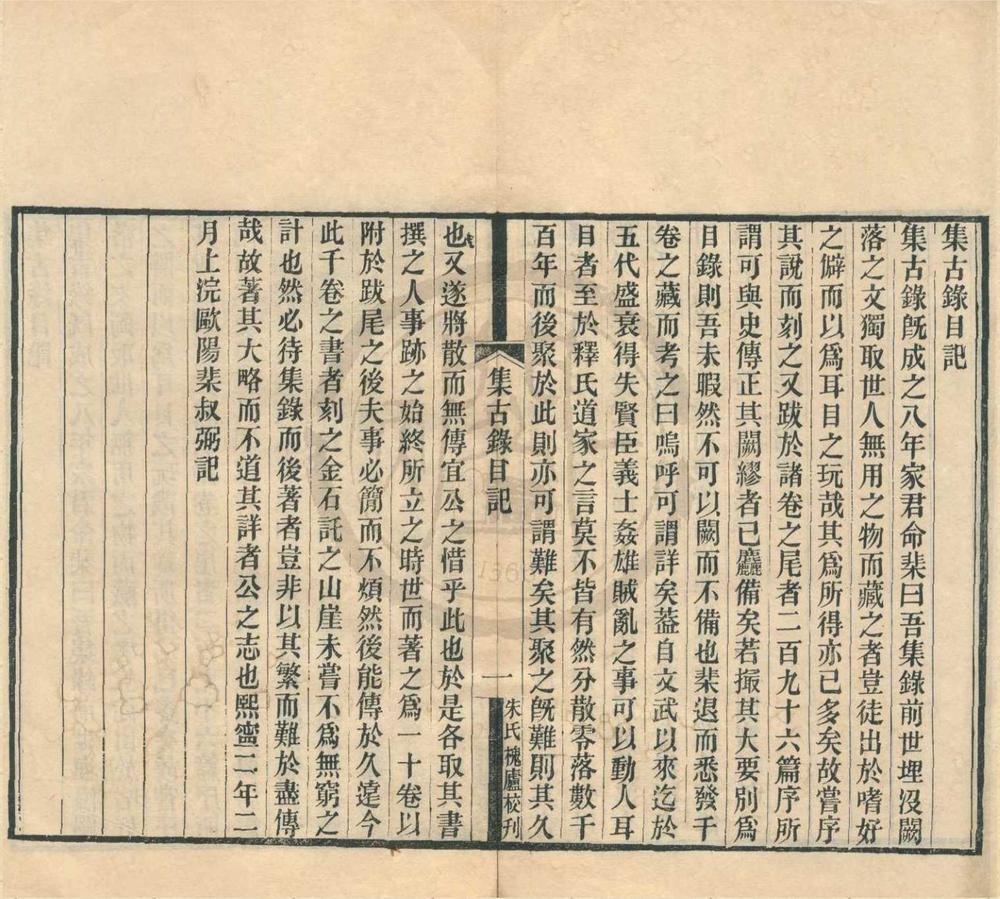 集古錄目記
集古錄旣成之八年家君命棐曰吾集錄前世埋沒闕
落之文獨取世人無用之物而藏之者豈徒出於嗜好
之僻而以爲耳目之玩哉其爲所得亦已多矣故嘗序
其說而刻之又跋於諸卷之尾者二百九十六篇序所
謂可與史傳正其闕繆者已麤備矣若撮其大要別爲
目錄則吾未暇然不可以闕而不備也棐退而悉發千
卷之藏而考之曰嗚呼可謂詳矣葢自文武以來迄於
五代盛衰得失賢臣義士姦雄賊亂之事可以動人耳
目者至於釋氏道家之言莫不皆有然分散零落數千
百年而後聚於此則亦可謂難矣其聚之旣難則其久
集古錄目記
一
朱氏槐廬校刊
也又遂將散而無傳宜公之惜乎此也於是各取其書
撰之人事跡之始終所立之時世而著之爲一十卷以
附於跋尾之後夫事必簡而不煩然後能傳於久遠今
此千卷之書者刻之金石託之山崖未嘗不爲無窮之
計也然必待集錄而後著者豈非以其繁而難於盡傳
哉故著其大略而不道其詳者公之志也熙寧二年二
月上浣歐陽棐叔弼記